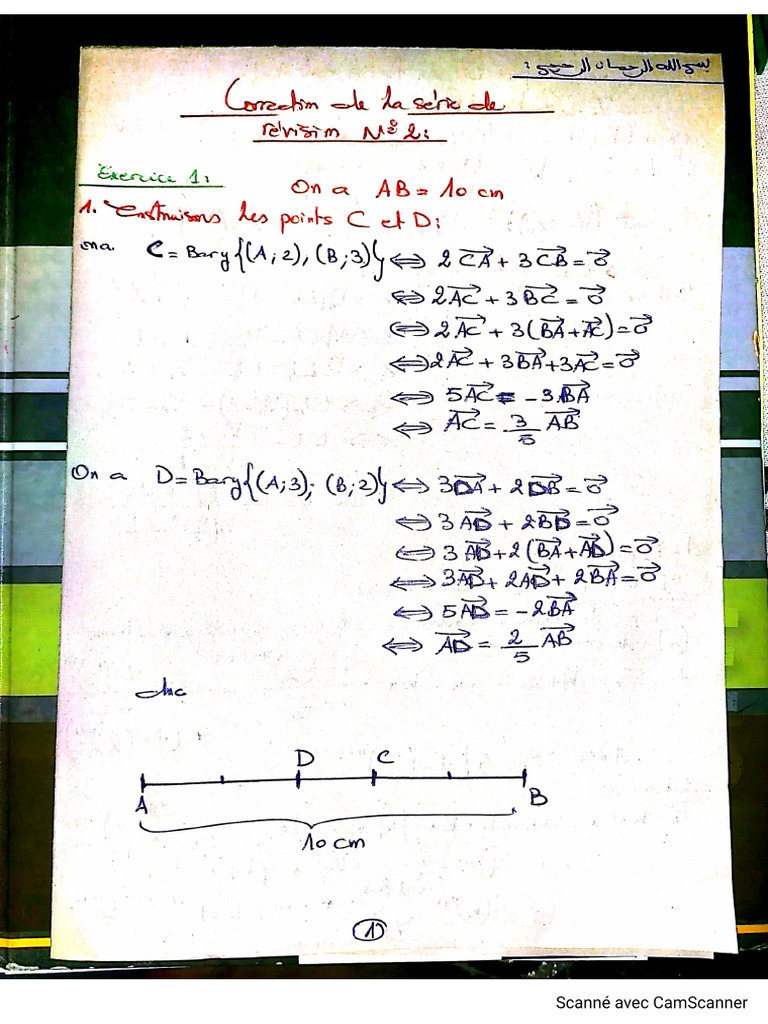 بسم الله الرحمان الرحيم :
Correction de la série de
révision N° 2:
Exercice 1:
On a AB = 10 cm
1. Construisons les points C et D:
ona C = Bary{(A;2),(B;3)} ⟺ 2CA⃗ + 3CB⃗ = 0⃗
⟺ 2AC⃗ + 3BC⃗ = 0⃗
⟺ 2AC⃗ + 3(BA⃗ + AC⃗) = 0⃗
⟺ 2AC⃗ + 3BA⃗ + 3AC⃗ = 0⃗
⟺ 5AC⃗ = -3BA⃗
⟺ AC⃗ = 3/5 AB⃗
On a D = Bary{(A;3);(B;2)} ⟺ 3DA⃗ + 2DB⃗ = 0⃗
⟺ 3AD⃗ + 2BD⃗ = 0⃗
⟺ 3AD⃗ + 2(BA⃗ + AD⃗) = 0⃗
⟺ 3AD⃗ + 2AD⃗ + 2BA⃗ = 0⃗
⟺ 5AD⃗ = -2BA⃗
⟺ AD⃗ = 2/5 AB⃗
donc
D C
A B
10 cm
1
Scanné avec CamScanner